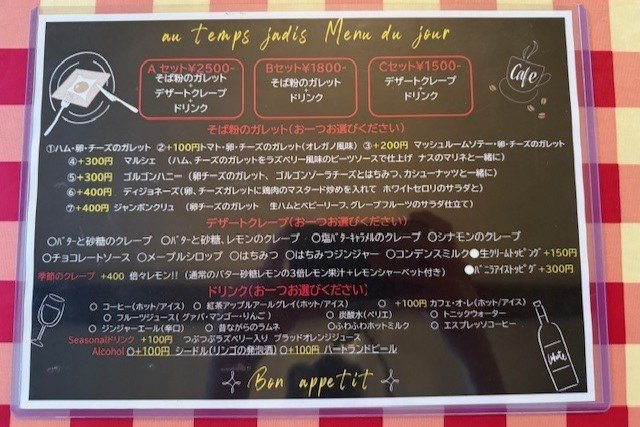 au temps jadis Menu du jour
Aセット¥2500-
そば粉のガレット
+
デザートクレープ
+
ドリンク
Bセット¥1800-
そば粉のガレット
+
ドリンク
Cセット¥1500-
デザートクレープ
+
ドリンク
Cafe
そば粉のガレット(お一つお選びください)
①ハム・卵・チーズのガレット ②+100円トマト・卵・チーズのガレット(オレガノ風味) ③+200円 マッシュルームソテー・卵・チーズのガレット
④+300円 マルシェ (ハム、チーズのガレットをラズベリー風味のビーツソースで仕上げ ナスのマリネと一緒に)
⑤+300円 ゴルゴンハニー (卵チーズのガレット、ゴルゴンゾーラチーズとはちみつ、カシューナッツと一緒に)
⑥+400円 ディジョネーズ(卵、チーズガレットに鶏肉のマスタード炒めを入れて ホワイトセロリのサラダと)
⑦+400円 ジャンボンクリュ (卵チーズのガレット 生ハムとベビーリーフ、グレープフルーツのサラダ仕立て)
デザートクレープ(お一つお選びください)
○バターと砂糖のクレープ ○バターと砂糖、レモンのクレープ ○塩バターキャラメルのクレープ ○シナモンのクレープ
○チョコレートソース ○メープルシロップ ○はちみつ ○はちみつジンジャー ○コンデンスミルク ●生クリームトッピング+150円
季節のクレープ +400 倍々レモン!! (通常のバター砂糖レモンの3倍レモン果汁+レモンシャーベット付き) ●バニラアイストッピング+300円
ドリンク(お一つお選びください)
○ コーヒー(ホット/アイス) ○ 紅茶アップルアールグレイ(ホット/アイス) ○ +100円 カフェ・オ・レ(ホット/アイス)
○ フルーツジュース( グァバ・マンゴー・りんご ) ○ 炭酸水(ペリエ) ○ トニックウォーター
○ ジンジャーエール(辛口) ○ 昔ながらのラムネ ○ふわふわホットミルク ○ エスプレッソコーヒー
Seasonalドリンク +100円 つぶつぶラズベリー入り ブラッドオレンジジュース
Alcohol ○+100円 シードル(リンゴの発泡酒) ○+100円 ハートランドビール
Bon appetit